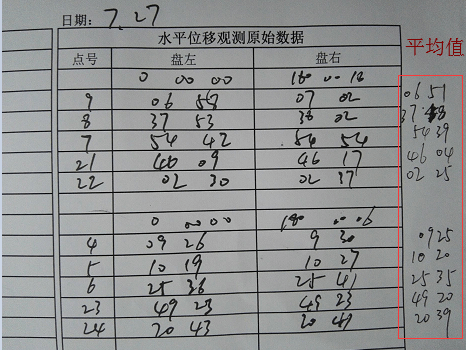 日期: 7.27
水平位移观测原始数据
点号 盘左 盘右 平均值
0 00 00 180 00 18
9 06 58 07 02 06 51
8 37 53 38 02 37
7 54 42 54 54 54 39
21 46 09 46 17 46 04
22 02 30 02 37 02 25
0 00 00 180 00 06
4 09 26 9 30 09 25
5 10 19 10 27 10 20
6 25 36 25 41 25 35
23 49 23 49 23 49 20
24 20 43 20 41 20 39